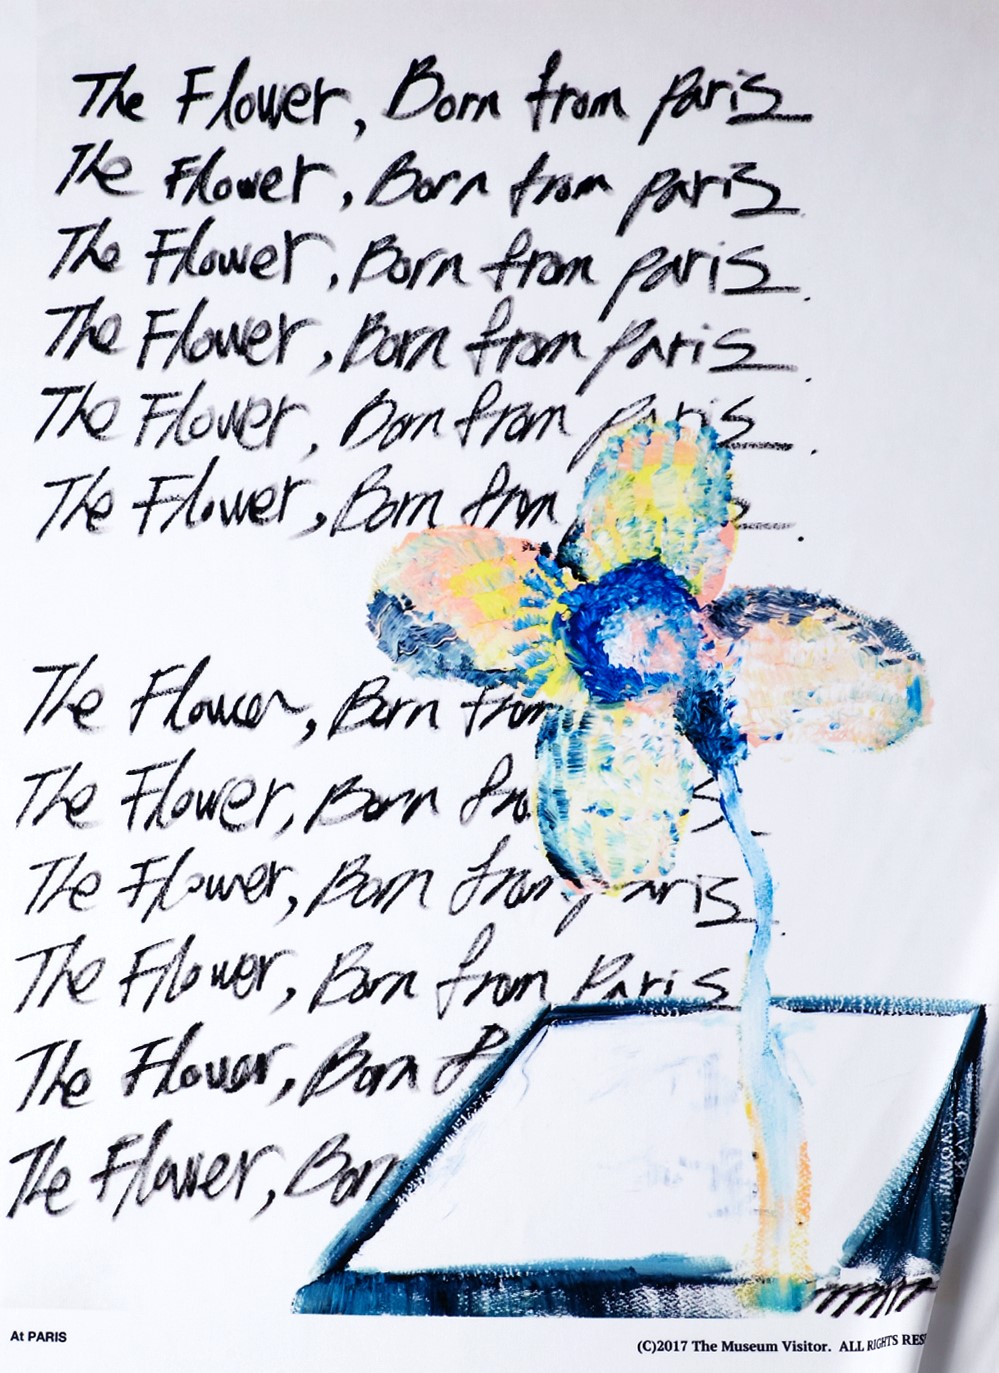 The Flower, Born from Paris
The Flower, Born from Paris
The Flower, Born from Paris.
The Flower, Born from Paris.
The Flower, Born from Paris.
The Flower, Born from
The Flower, Born from
The Flower, Born fro
The Flower, Born from Paris.
The Flower, Born from Paris
The Flower, Born
The Flower, Born
At PARIS
(C)2017 The Museum Visitor. ALL RIGHTS RES